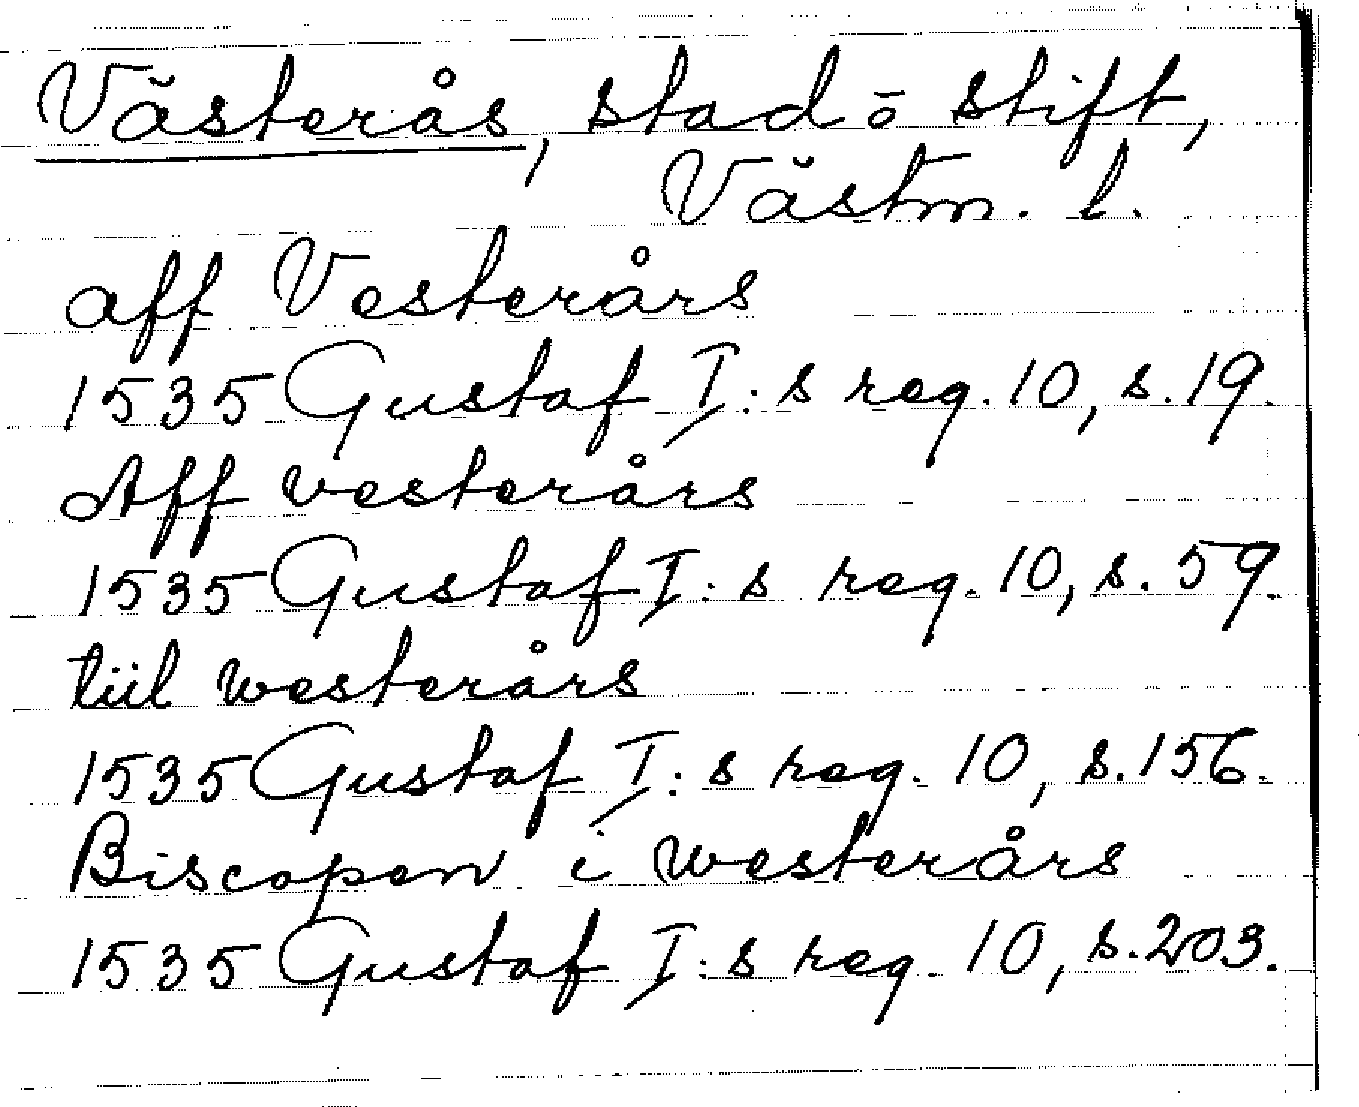 Västerås, stad ō stift,
Västm. l.
aff Vesterårs
1535 Gustaf I:s reg. 10, s. 19.
Aff vesterårs
1535 Gustaf I:s reg. 10, s. 59.
tiil westerårs
1535 Gustaf I:s reg. 10, s. 156.
Biscopen i westerårs
1535 Gustaf I:s reg. 10, s. 203.